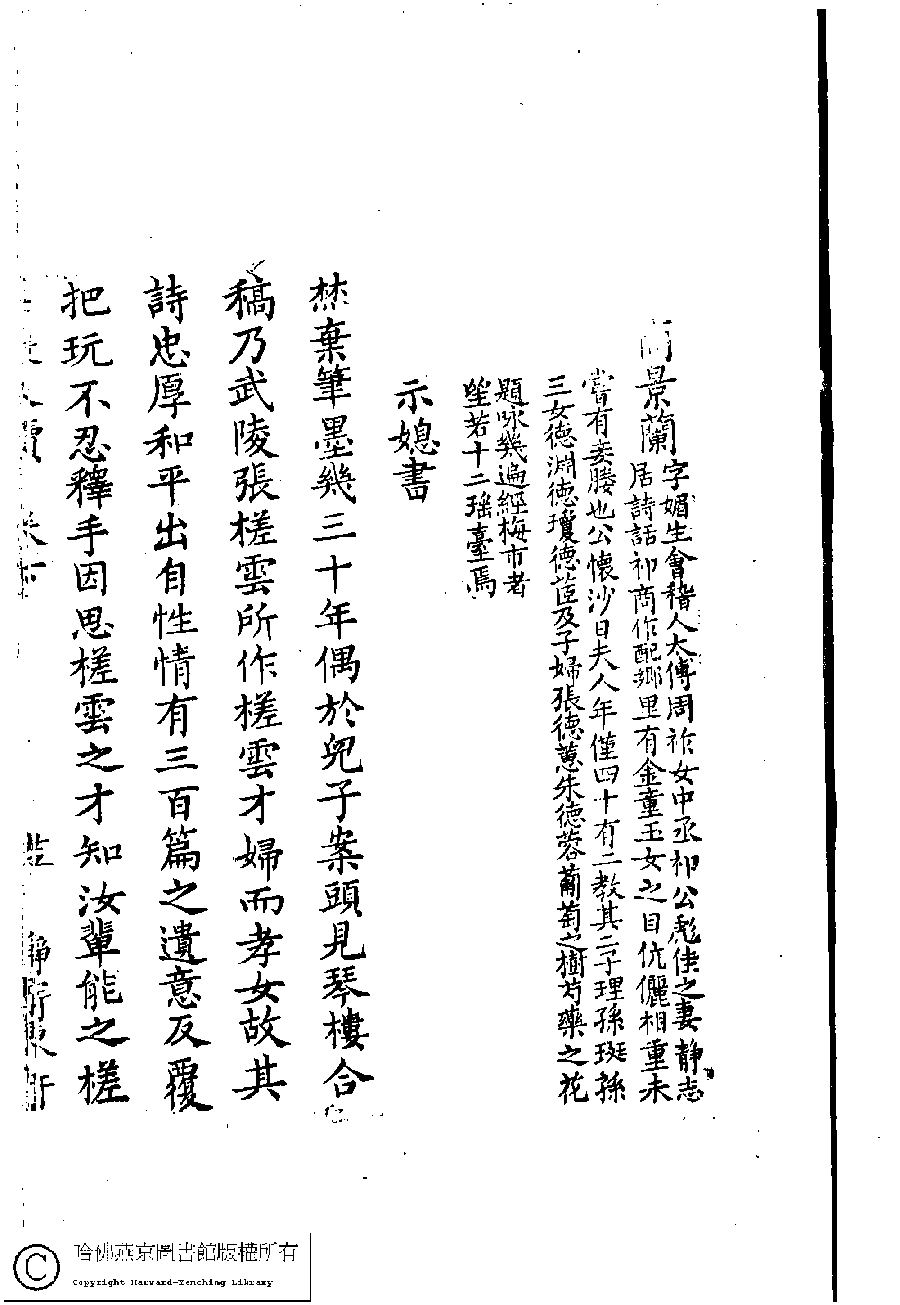 商景蘭
字媚生會稽人太傅周祚女中丞祁公彪佳之妻靜志
居詩話祁商作配鄉里有金童玉女之目伉儷相重未
嘗有妾媵也公懷沙日夫人年僅四十有二教其二子理孫班孫
三女德淵德瓊德茝及子婦張德蕙朱德蓉葡萄之樹芍藥之花
題咏幾遍經梅市者
望若十二瑤臺焉
示媳書
焚棄筆墨幾三十年偶於兒子案頭見琴樓合
稿乃武陵張槎雲所作槎雲才婦而孝女故其
詩忠厚和平出自性情有三百篇之遺意反覆
把玩不忍釋手因思槎雲之才知汝輩能之槎
哈佛燕京圖書館版權所有
Copyright Harvard-Yenching Library